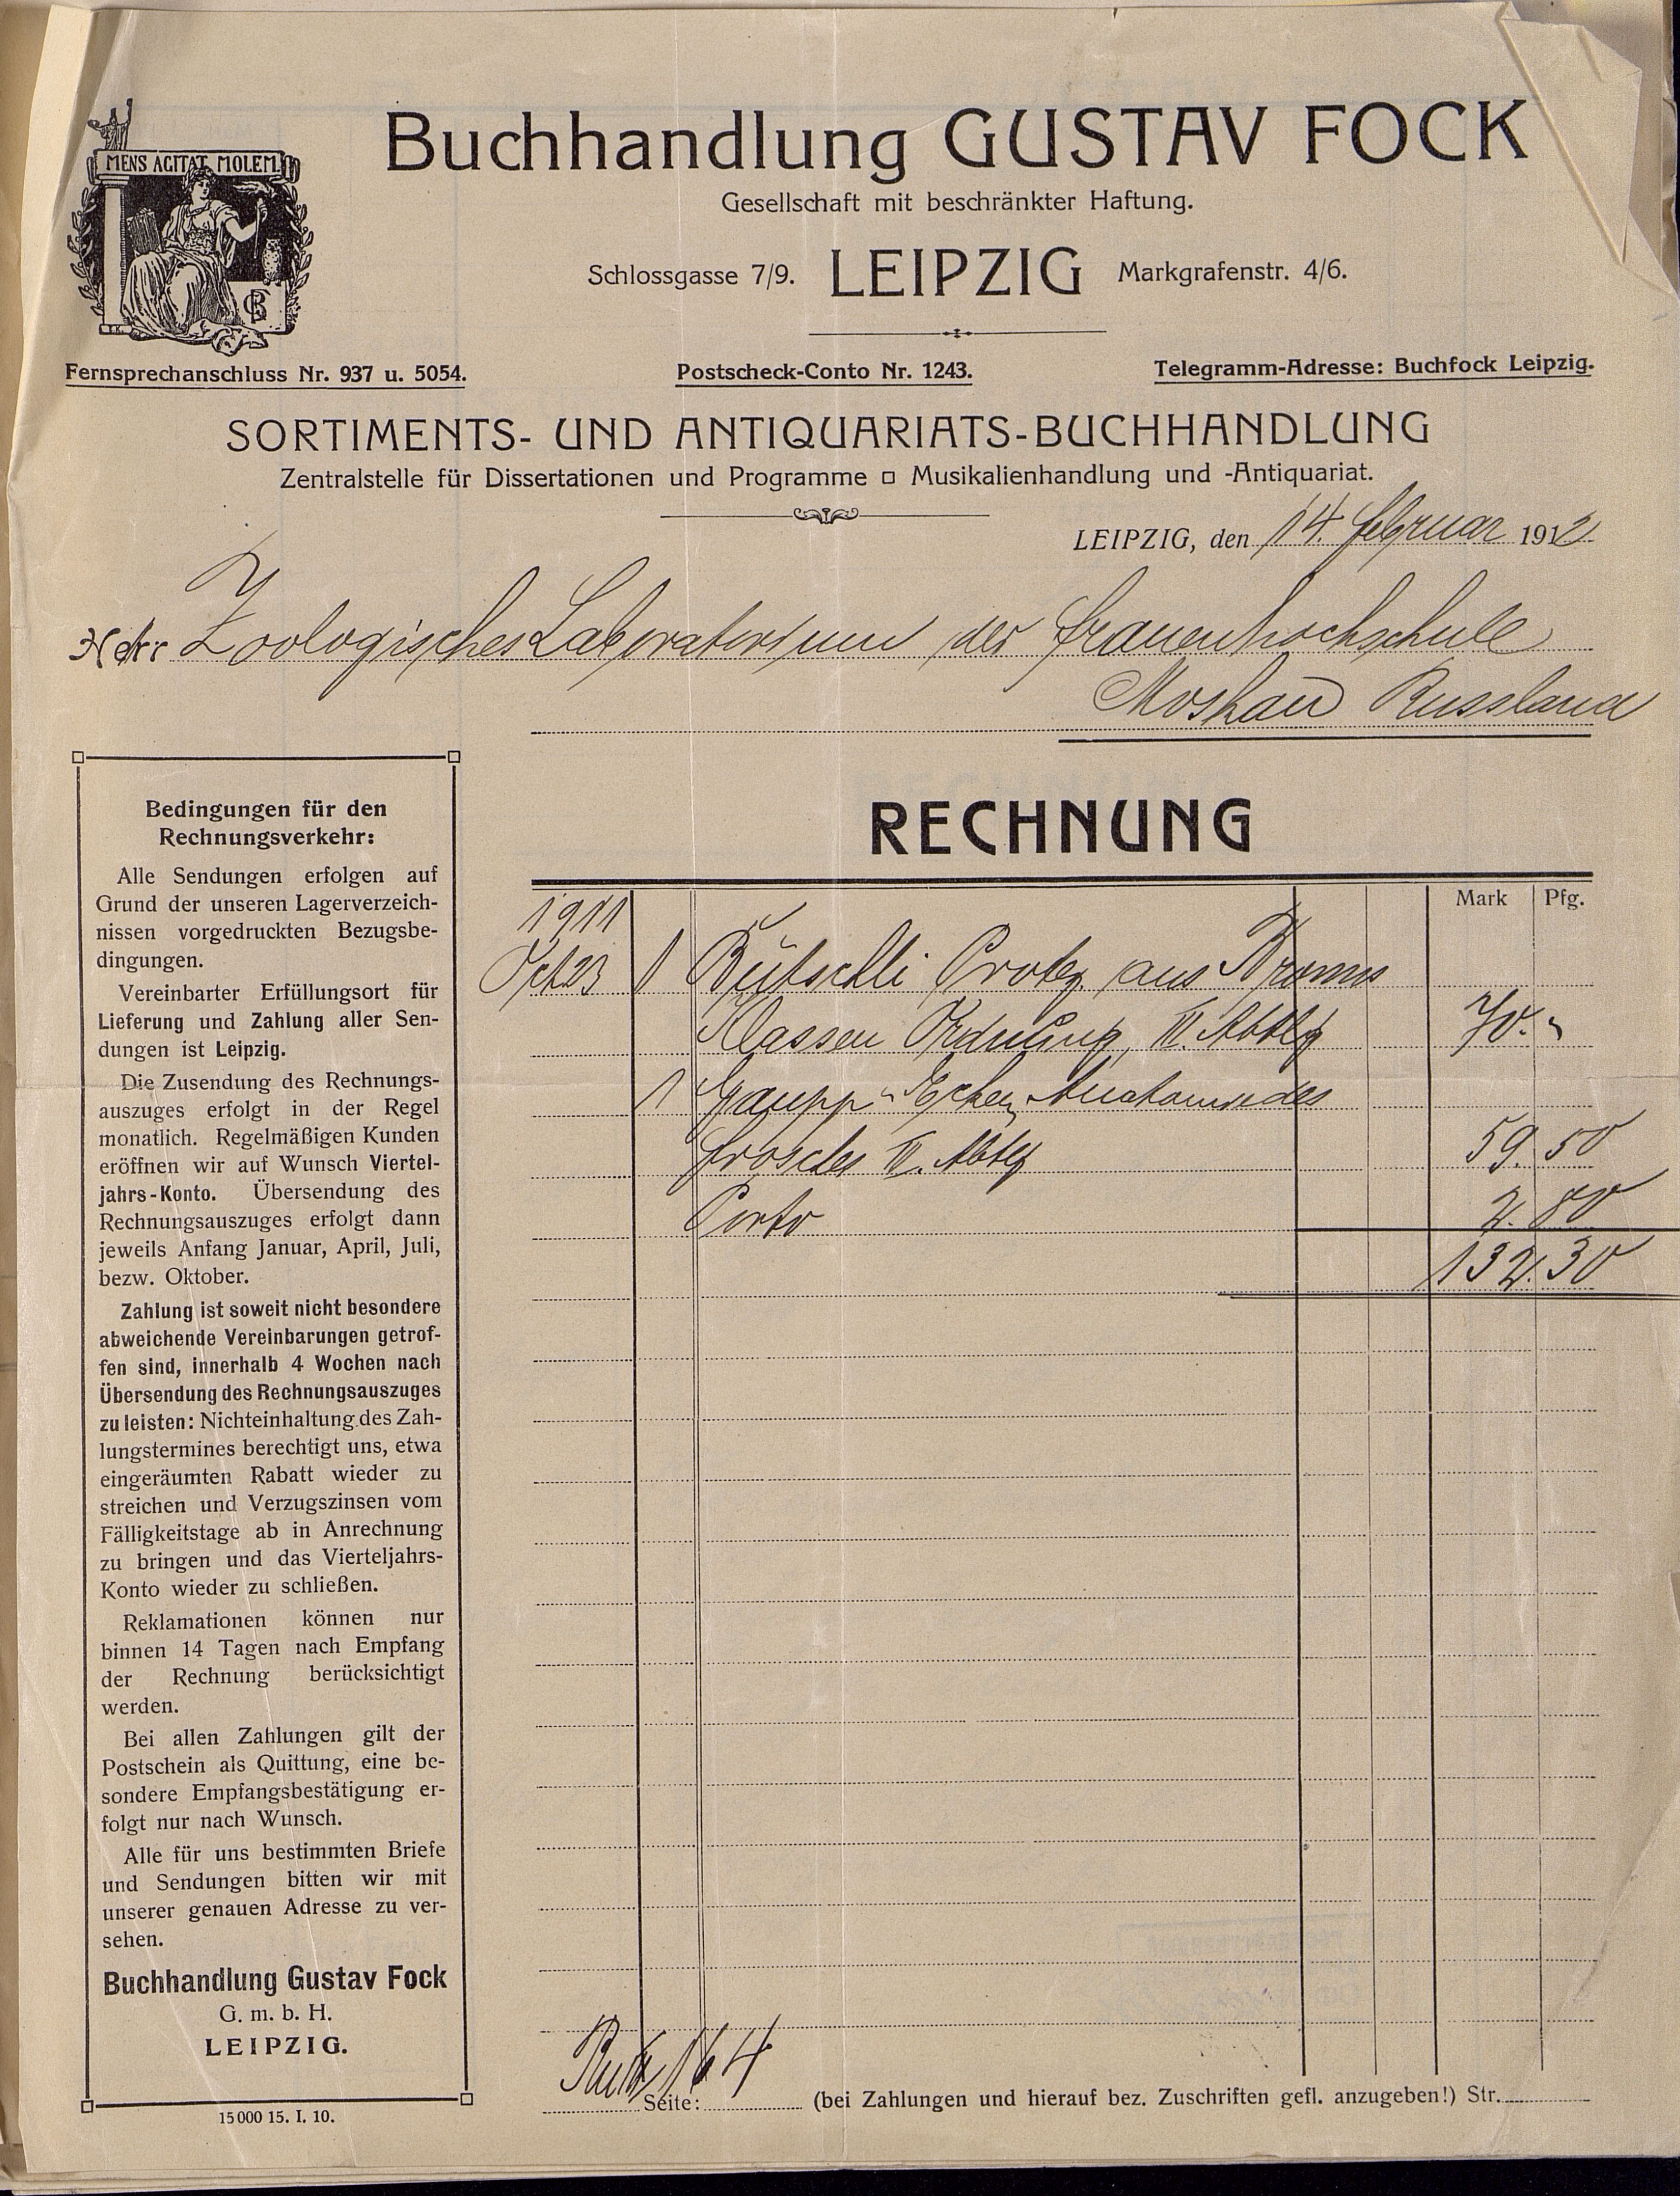 MENS AGITAT MOLEM
Buchhandlung GUSTAV FOCK
Gesellschaft mit beschränkter Haftung.
Schlossgasse 7/9. LEIPZIG Markgrafenstr. 4/6.
Fernsprechanschluss Nr. 937 u. 5054. Postscheck-Conto Nr. 1243. Telegramm-Adresse: Buchfock Leipzig.
SORTIMENTS- UND ANTIQUARIATS-BUCHHANDLUNG
Zentralstelle für Dissertationen und Programme ▫ Musikalienhandlung und -Antiquariat.
LEIPZIG, den 14. Februar 1912
Zoologisches Laboratorium der Frauenhochschule
Moskau Russland
Bedingungen für den
Rechnungsverkehr:
Alle Sendungen erfolgen auf
Grund der unseren Lagerverzeich-
nissen vorgedruckten Bezugsbe-
dingungen.
Vereinbarter Erfüllungsort für
Lieferung und Zahlung aller Sen-
dungen ist Leipzig.
Die Zusendung des Rechnungs-
auszuges erfolgt in der Regel
monatlich. Regelmäßigen Kunden
eröffnen wir auf Wunsch Viertel-
jahrs-Konto. Übersendung des
Rechnungsauszuges erfolgt dann
jeweils Anfang Januar, April, Juli,
bezw. Oktober.
Zahlung ist soweit nicht besondere
abweichende Vereinbarungen getrof-
fen sind, innerhalb 4 Wochen nach
Übersendung des Rechnungsauszuges
zu leisten: Nichteinhaltung des Zah-
lungstermines berechtigt uns, etwa
eingeräumten Rabatt wieder zu
streichen und Verzugszinsen vom
Fälligkeitstage ab in Anrechnung
zu bringen und das Vierteljahrs-
Konto wieder zu schließen.
Reklamationen können nur
binnen 14 Tagen nach Empfang
der Rechnung berücksichtigt
werden.
Bei allen Zahlungen gilt der
Postschein als Quittung, eine be-
sondere Empfangsbestätigung er-
folgt nur nach Wunsch.
Alle für uns bestimmten Briefe
und Sendungen bitten wir mit
unserer genauen Adresse zu ver-
sehen.
Buchhandlung Gustav Fock
G. m. b. H.
LEIPZIG.
15000 15. I. 10.
RECHNUNG
Mark Pfg.
1911
Oct 23 1 Bütschli Protoz. aus Bronns
Klassen Ordnung, III. Abtlg 70.-
1 Gaupp-Ecker, Anatomie des
Frosches III. Abtlg 59.50
Porto 2.80
132.30
164
Seite: (bei Zahlungen und hierauf bez. Zuschriften gefl. anzugeben!) Str.